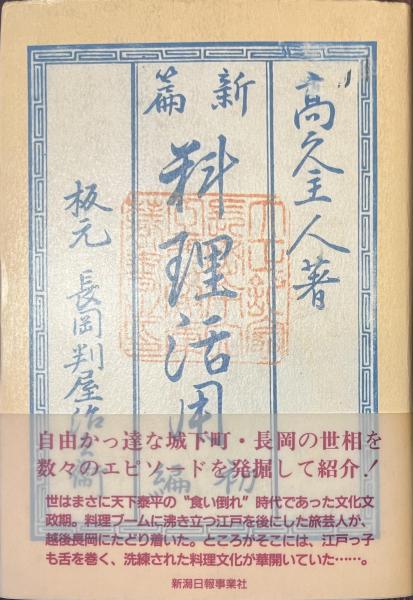 高久主人著
新篇
料理活用
初編
板元 長岡判屋治
自由かっ達な城下町・長岡の世相を
数々のエピソードを発掘して紹介!
世はまさに天下泰平の“食い倒れ”時代であった文化文
政期。料理ブームに沸き立つ江戸を後にした旅芸人が、
越後長岡にたどり着いた。ところがそこには、江戸っ子
も舌を巻く、洗練された料理文化が華開いていた……。
新潟日報事業社